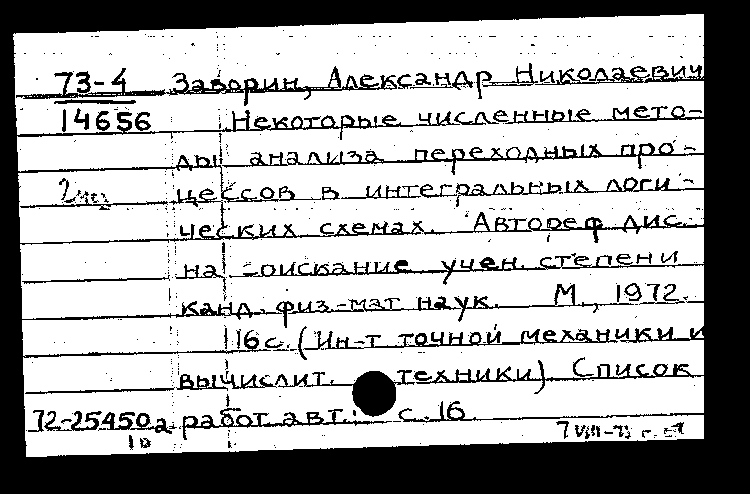 73-4 Заворин, Александр Николаевич
14656 Некоторые численные мето-
ды анализа переходных про-
цессов в интегральных логи-
ческих схемах. Автореф дис.
на соискание учен. степени
канд. физ.-мат наук. М., 1972.
16с. (Ин-т точной механики и
вычислит. техники). Список
72-25450а работ авт.: с. 16.
10